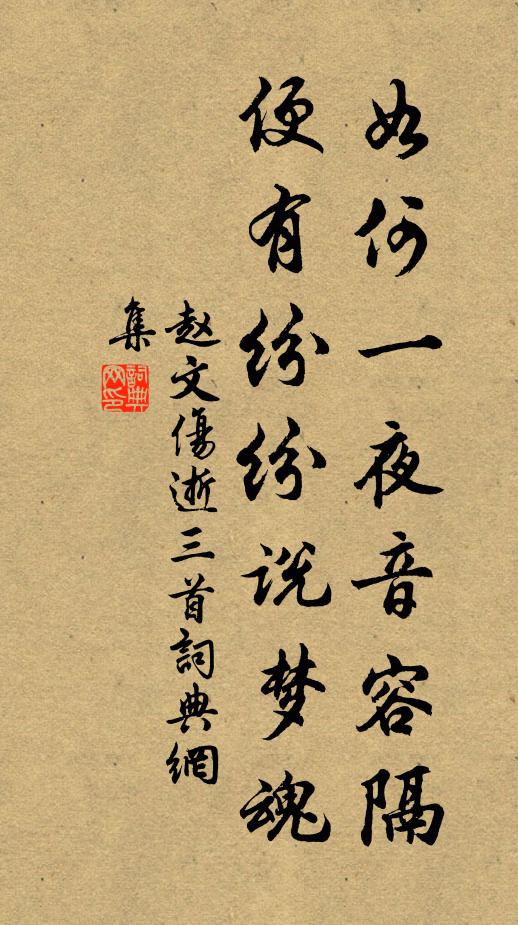 如何一夜音容隔
便有纷纷说梦魂
赵文傷逝三首詞典網
集
詞典網印